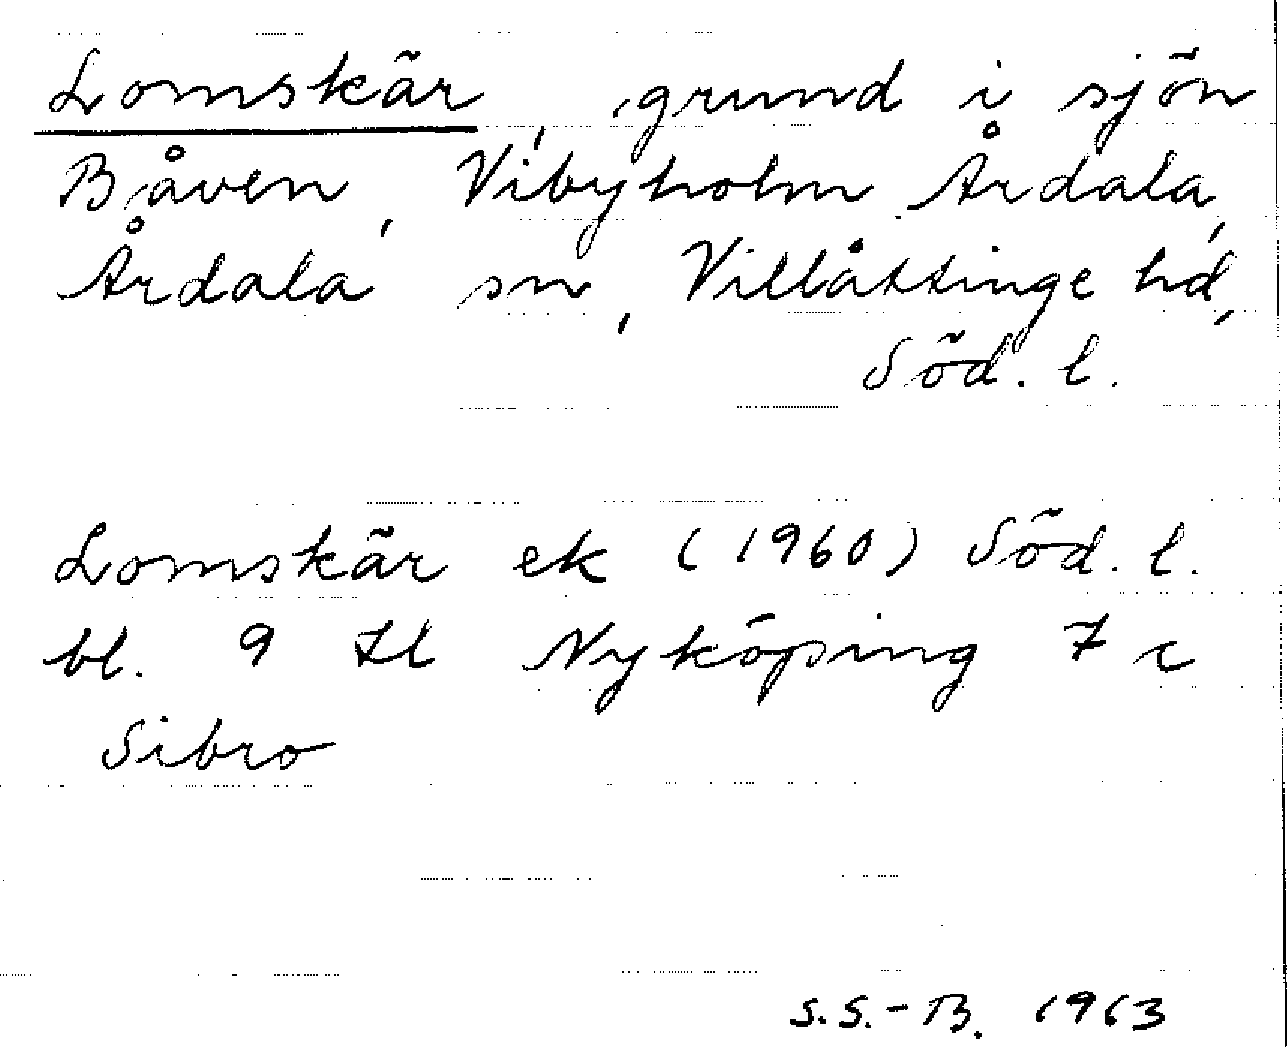 Lomskär, grund i sjön
Båven, Vibyholm Årdala,
Årdala sn, Villåttinge hd,
Söd. l.
Lomskär ek (1960) Söd. l.
bl. 9 tl Nyköping 7 c
Sibro
S.S.-B. 1963